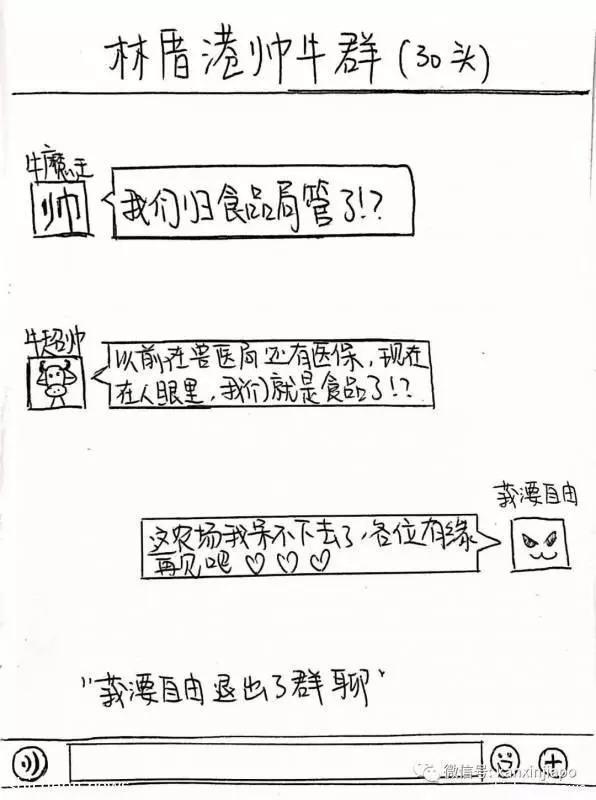 林厝港帅牛群(30头)
牛魔王
帅
我们归食品局管了!?
牛超帅
以前在兽医局还有医保,现在
在人眼里,我们就是食品了!?
莪要自由
这农场我呆不下去了,各位有缘
再见吧♡♡♡
"莪要自由退出了群聊"
微信号: kanxinjiapo